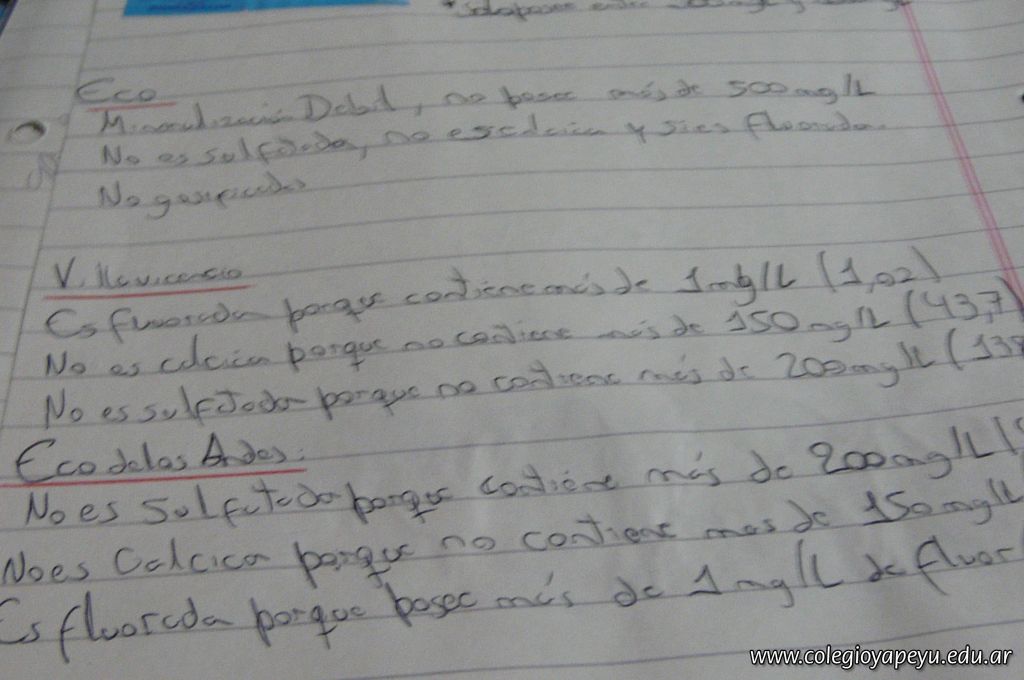 Eco
Mineralización Debil, no posee más de 500 mg/L
No es sulfatada, no es calcica y si es fluorada.
No gasificada
Villavicencio
Es fluorada porque contiene más de 1mg/L (1,02)
No es calcica porque no contiene más de 150 mg/L (43,7)
No es sulfatada porque no contiene más de 200mg/L (138
Eco de los Andes:
No es sulfatada porque contiene más de 200mg/L
No es Calcica porque no contiene mas de 150mg/L
Es fluorada porque posee más de 1mg/L de fluor
www.colegioyapeyu.edu.ar